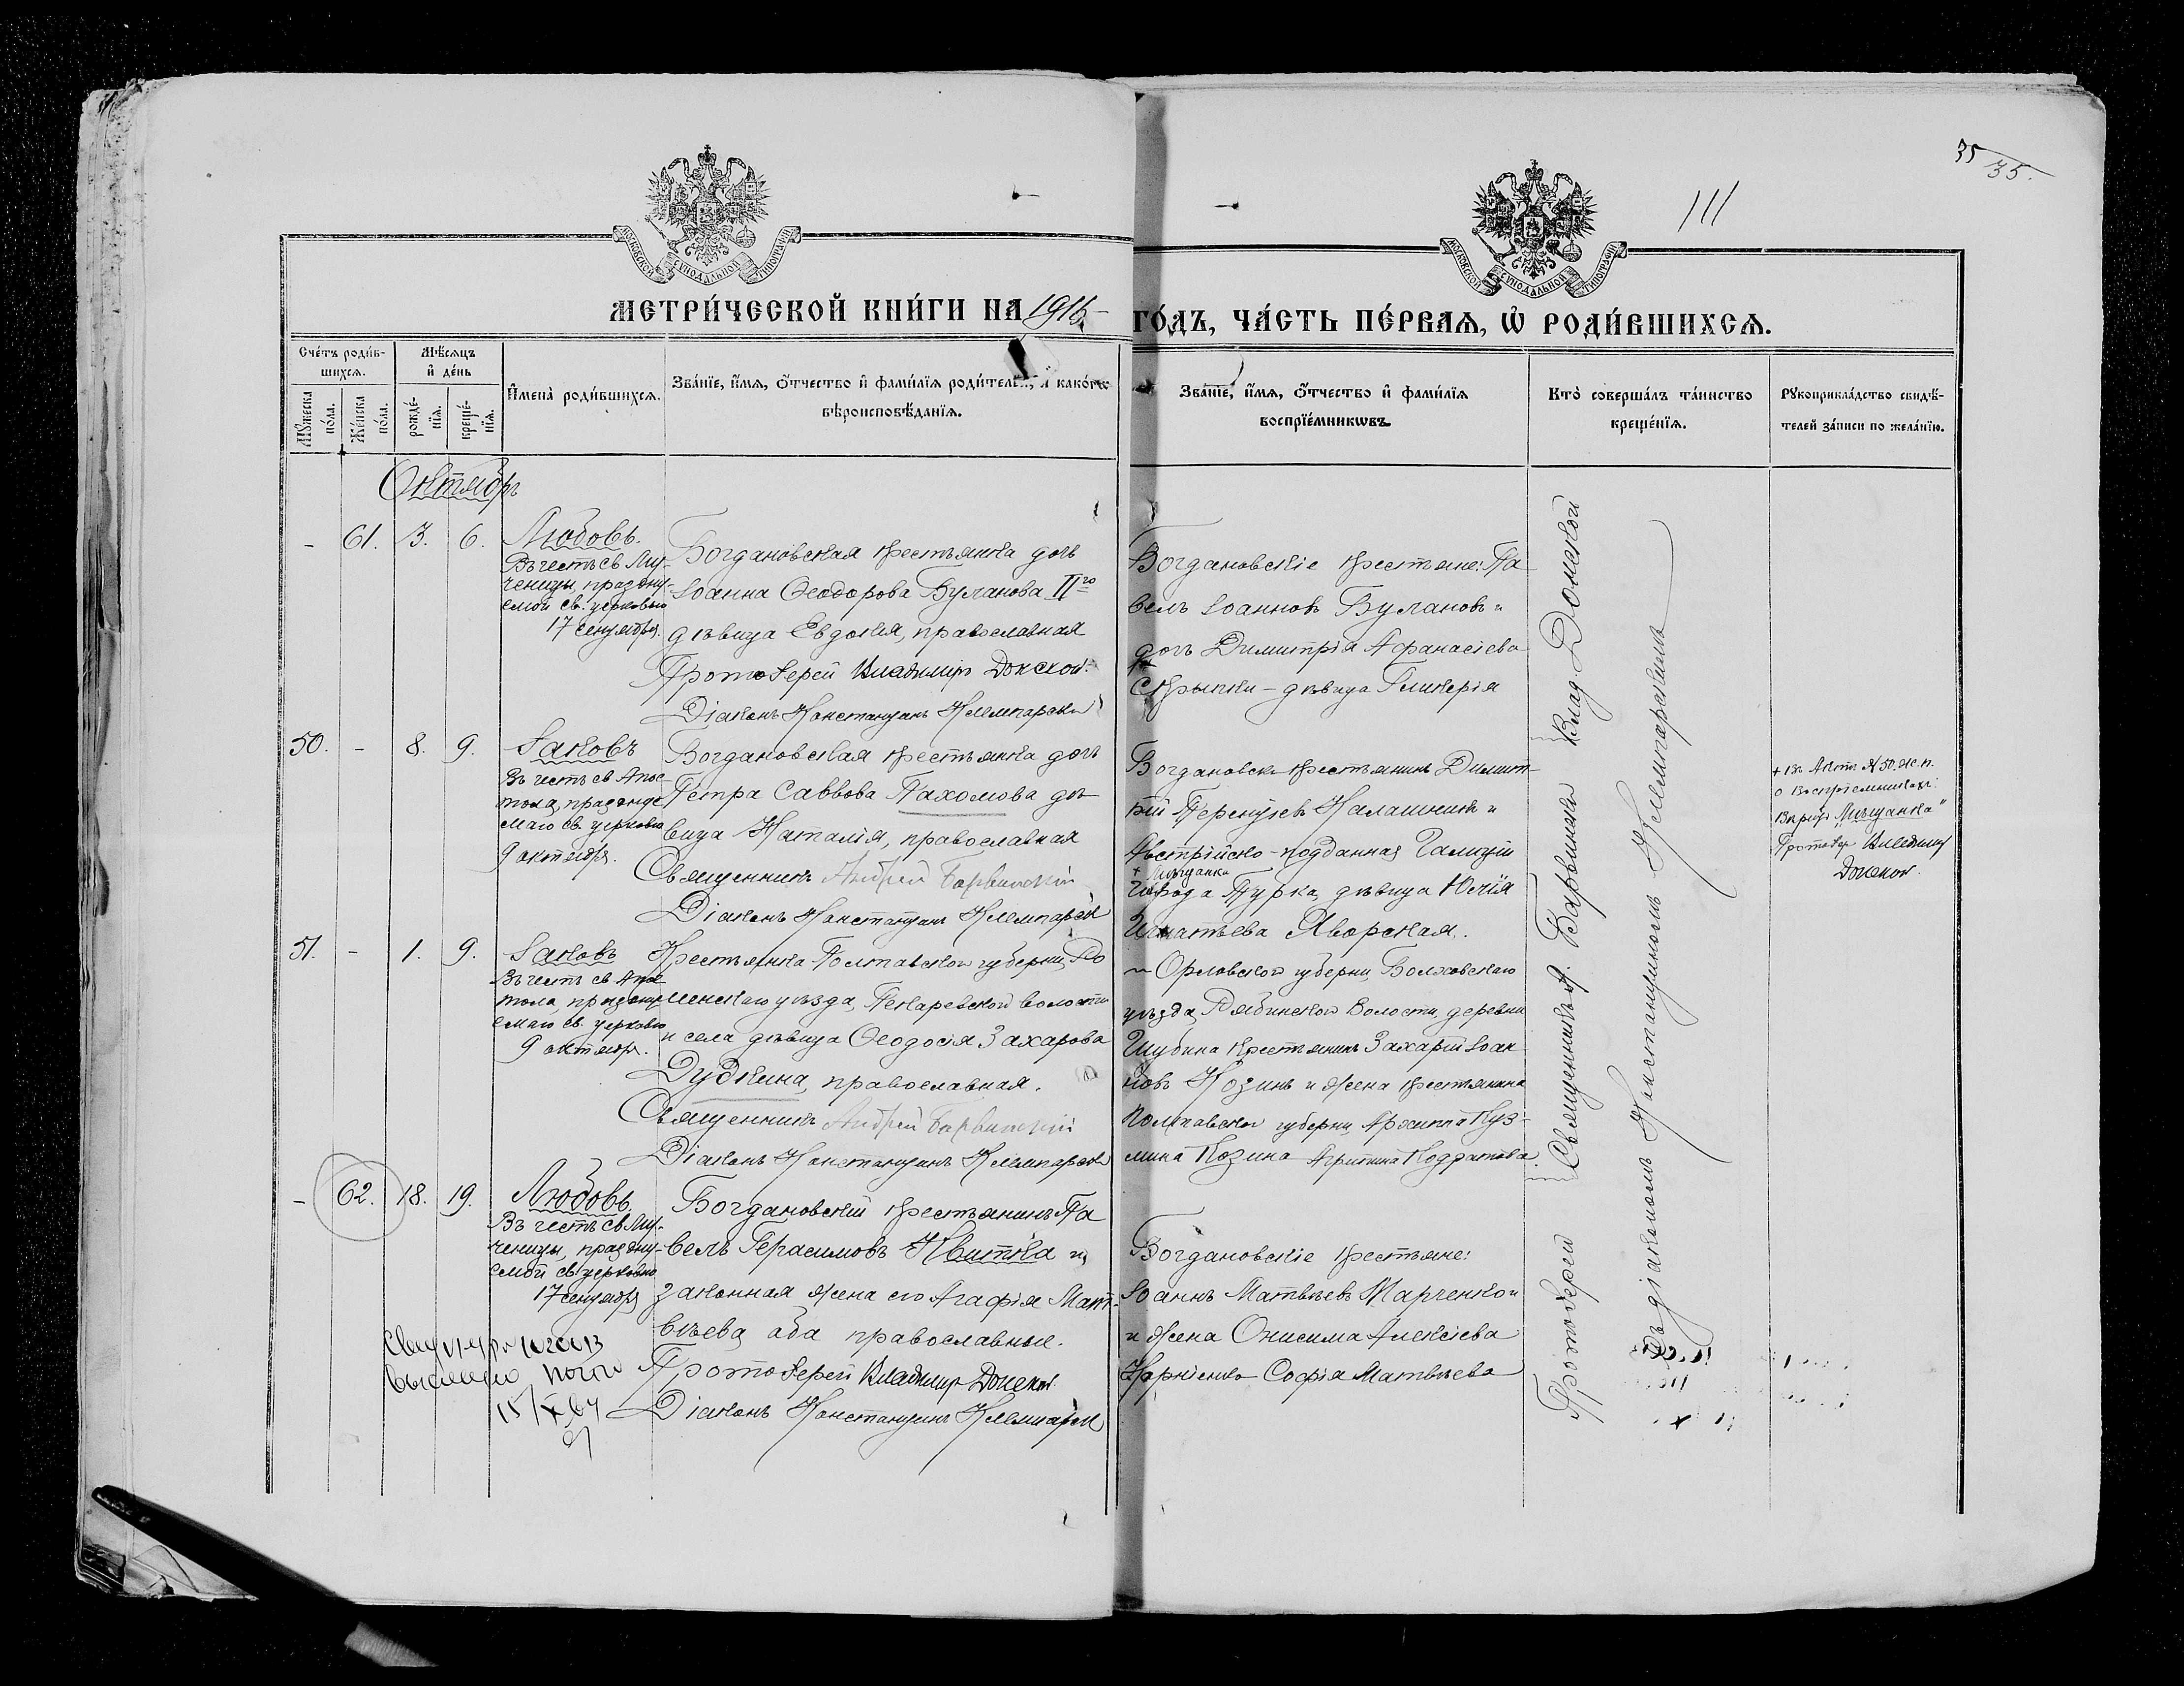 35
35.
111
МОСКОВСКОЙ СѴНОДАЛЬНОЙ ТИПОГРАФІИ
МОСКОВСКОЙ СѴНОДАЛЬНОЙ ТИПОГРАФІИ
МЕТРИ́ЧЕСКОЙ КНИ́ГИ НА 1916
ГО́ДЪ, ЧА́СТЬ ПЕ́РВАѦ, Ѡ҆ РОДИ́ВШИХСѦ.
Сче́тъ роди́в-
шихсѧ.
Мꙋ́жеска по́ла.
Же́нска по́ла.
Мѣ́сѧцъ
и҆ де́нь
рожде́-
нїѧ.
креще́-
нїѧ.
И҆мена̀ роди́вшихсѧ.
Зва́нїе, и҆́мѧ, ѻ҆́тчество и҆ фами́лїѧ роди́телей, и҆ како́гѡ
вѣроисповѣ́данїѧ.
Зва́нїе, и҆́мѧ, ѻ҆́тчество и҆ фами́лїѧ
воспрїе́мникѡвъ.
Кто̀ соверша́лъ та́инство
креще́нїѧ.
Рꙋкоприкла́дство свидѣ́-
телей за́писи по жела́нїю.
Октябрь
- 61. 3. 6.
Любовь.
Въ честь св. Му-
ченицы, праздну-
емой св. церковью
17 сентября.
Богдановская крестьянка дочь
Іоанна Ѳеодорова Буланова IIго
дѣвица Евдокія, православная
Протоіерей Владимиръ Донской.
Діаконъ Константинъ
Богдановскіе крестьяне: Па
велъ Іоанновъ Булановъ и
дочь Димитрія Афанасіева
Скрыпки - дѣвица Гликерія
50. - 8. 9.
Іаковъ
Въ честь св. Апос-
тола, празднуе
маго св. церковью
9 октября.
Богдановская крестьянка дочь
Петра Саввова Пахомова дѣ
вица Наталія, православная
Священникъ Андрей Барвинскій
Діаконъ Константинъ
Богдановскій крестьянинъ Димит-
рій Терентіевъ Калашникъ и
Австрійско-подданная Галиціи
+ Мѣщанка
города Турка, дѣвица Юлія
Игнатьева Яворская.
+ Въ Актѣ № 50. м. п.
о воспріемникахъ:
"Мѣщанка"
Протоіер Владимиръ
Донской.
51. - 1. 9.
Іаковъ
Въ честь св. Апос
тола, праздну
емаго св. церковью
9 октября.
Крестьянка Полтавской губерніи, Ро
менскаго уѣзда, Пекаревской волости
и села дѣвица Ѳеодосія Захарова
Дудкина, православная.
Священникъ Андрей Барвинскій
Діаконъ Константинъ
Орловской губерніи, Болховскаго
уѣзда, Рябинской волости, деревни
крестьянинъ Захарій Іоан
новъ Козинъ и жена крестьянина
Полтавской губерніи, Архиппа Куз-
мина Козина
- 62. 18. 19.
Любовь.
Въ честь св. Му-
ченицы, праздну-
емой св. церковью
17 сентября
Богдановскій крестьянинъ Па
велъ Герасимовъ Квитка и
законная жена его Агафія Мат-
вѣева, оба православные.
Протоіерей Владимиръ Донской.
Діаконъ Константинъ
Богдановскіе крестьяне:
Іоаннъ Матвѣевъ Марченко
и жена Онисима Алексіева
Карніенко Софія Матвѣева
15/X 64
Протоіерей
Священникъ А. Барвинскій
Влад. Донской
съ діакономъ Константиномъ